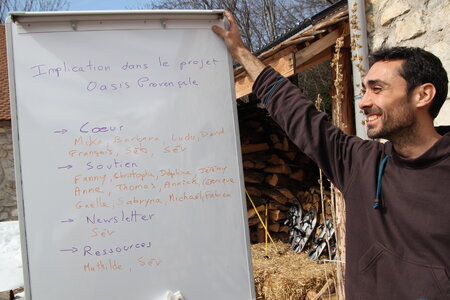 Implication dans le projet
Oasis Provençale
→ Cœur
Mike, Barbara, Ludo, David
François, Séb, Sév
→ Soutien
Fanny, Christophe, Delphine, Jérémy
Anne, Thomas, Annick, Véronique
Gaëlle, Sabryna, Michaël, Fabien
→ Newsletter
Sév
→ Ressources
Mathilde, Sév